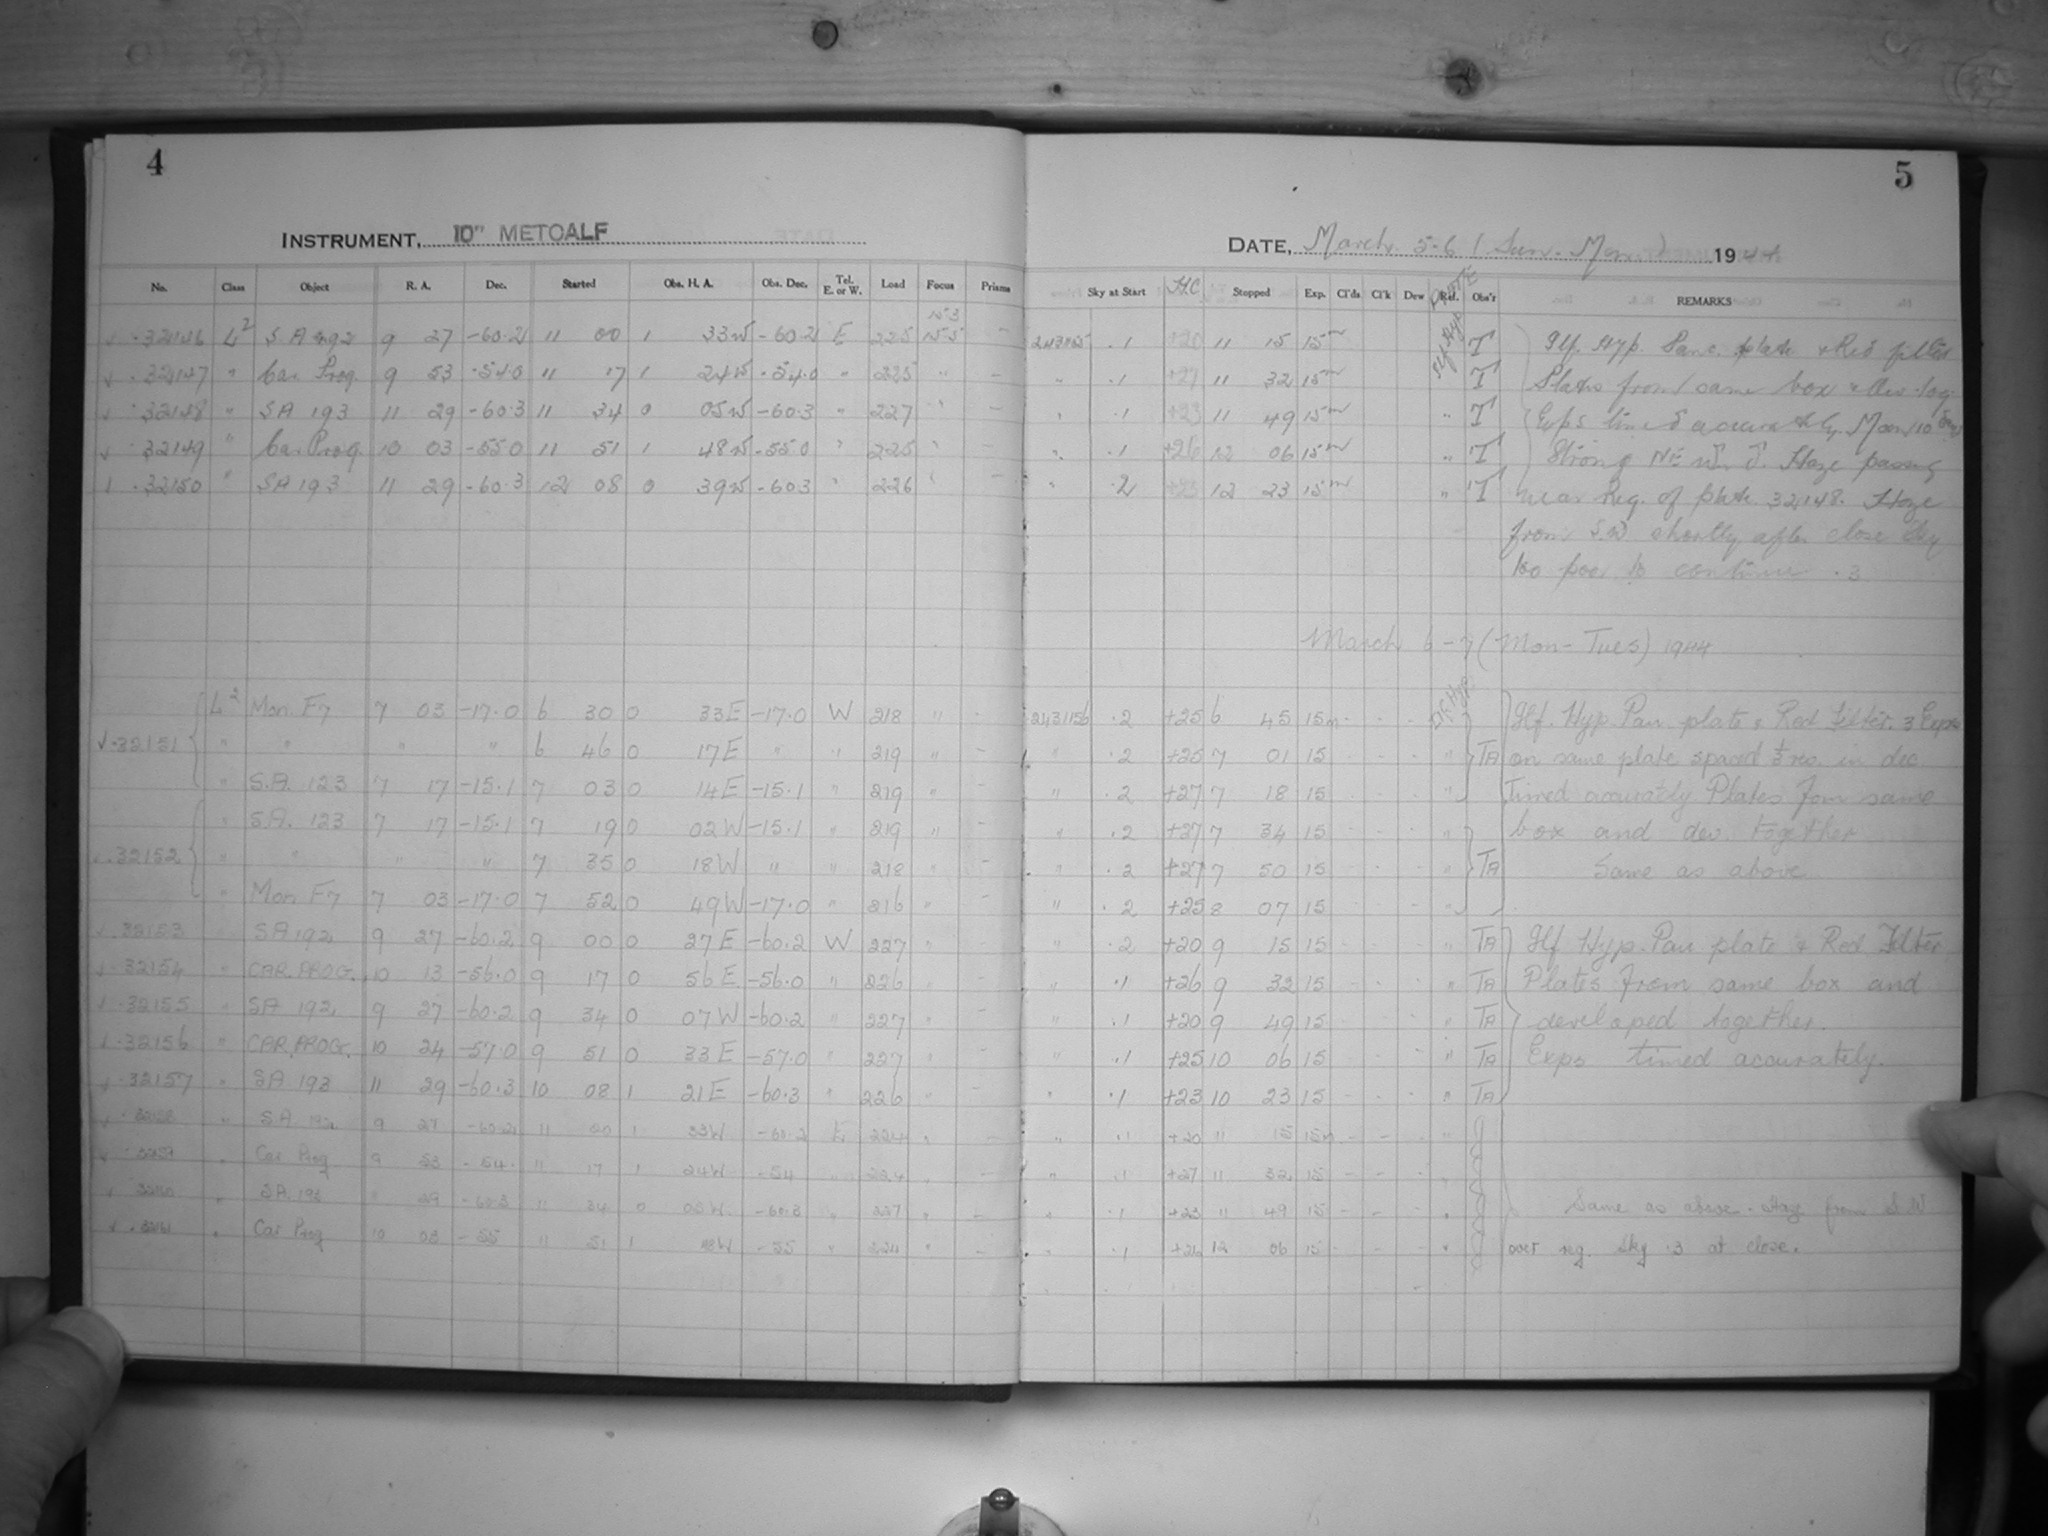 4
5
INSTRUMENT, 10" METCALF
DATE, March 5-6 (Sun. Mon.) 1944
No. Class Object R. A. Dec. Started Obs. H. A. Obs. Dec. Tel. E. or W. Load Focus Prisms Sky at Start H.C. Stopped Exp. Cl'ds Cl'k Dew Ref. Obs'r REMARKS
32146 L2 S A 192 9 27 -60.2 11 00 1 33W -60.2 E 225 .1 +20 11 15 15m T Ilf. Hyp. Panc. plate & Red filter
32147 " Car. Prog. 9 53 -54.0 11 17 1 24W -54.0 " 225 " - " .1 +27 11 32 15m T Plates from same box & dev. tog.
32148 " SA 193 11 29 -60.3 11 34 0 05W -60.3 " 227 " - " .1 +23 11 49 15m " T Exps timed accurately. Moon 10
32149 " Car Prog. 10 03 -55.0 11 51 1 48W -55.0 " 225 " - " .1 +26 12 06 15m " T Strong NE Haze passing
32150 " SA 193 11 29 -60.3 12 08 0 39W -60.3 " 226 " - " .2 +23 12 23 15m " T near Reg. of plate 32148. Haze
from S.W shortly after close Sky
too poor to continue .3
March 6-7 (Mon-Tues) 1944
L2 Mon. F7 7 03 -17.0 6 30 0 33E -17.0 W 218 " - 2431156 .2 +25 6 45 15m Ilf. Hyp. Pan. plate & Red Filter. 3 Exps
32151 " " " " 6 46 0 17E " " 219 " - " .2 +25 7 01 15 " TA on same plate spaced in dec.
" S.A. 123 7 17 -15.1 7 03 0 14E -15.1 " 219 " - " .2 +27 7 18 15 " Timed accurately Plates from same
" S.A. 123 7 17 -15.1 7 19 0 02W -15.1 " 219 " - " .2 +27 7 34 15 " box and dev. together
32152 " " " " 7 35 0 18W " " 218 - " .2 +27 7 50 15 " TA Same as above
" Mon F7 7 03 -17.0 7 52 0 49W -17.0 " 216 " - " .2 +25 8 07 15 "
32153 SA 192 9 27 -60.2 9 00 0 27E -60.2 W 227 " - " .2 +20 9 15 15 " TA Ilf Hyp. Pan plate & Red Filter
32154 " CAR. PROG. 10 13 -56.0 9 17 0 56E -56.0 " 226 " - " .1 +26 9 32 15 " TA Plates from same box and
32155 " SA 192 9 27 -60.2 9 34 0 07W -60.2 " 227 " - " .1 +20 9 49 15 " TA developed together.
32156 " CAR. PROG. 10 24 -57.0 9 51 0 33E -57.0 " 227 " - " .1 +25 10 06 15 " TA Exps timed accurately.
32157 " SA 193 11 29 -60.3 10 08 1 21E -60.3 " 226 " - " .1 +23 10 23 15 " TA
32158 " S.A. 192 9 27 -60.2 11 00 1 33W -60.2 E 224 " - " .1 +20 11 15 15m "
32159 " Car Prog 9 53 -54. 11 17 1 24W -54 " 224 " - " .1 +27 11 32 15 "
32160 " S.A. 193 " 29 -60.3 11 34 0 05W -60.3 " 227 " - " .1 +23 11 49 15 " Same as above. Haze from S.W
32161 " Car Prog 10 03 -55 11 51 1 48W -55 " 224 " - " .1 +26 12 06 15 " over reg. Sky .3 at close.